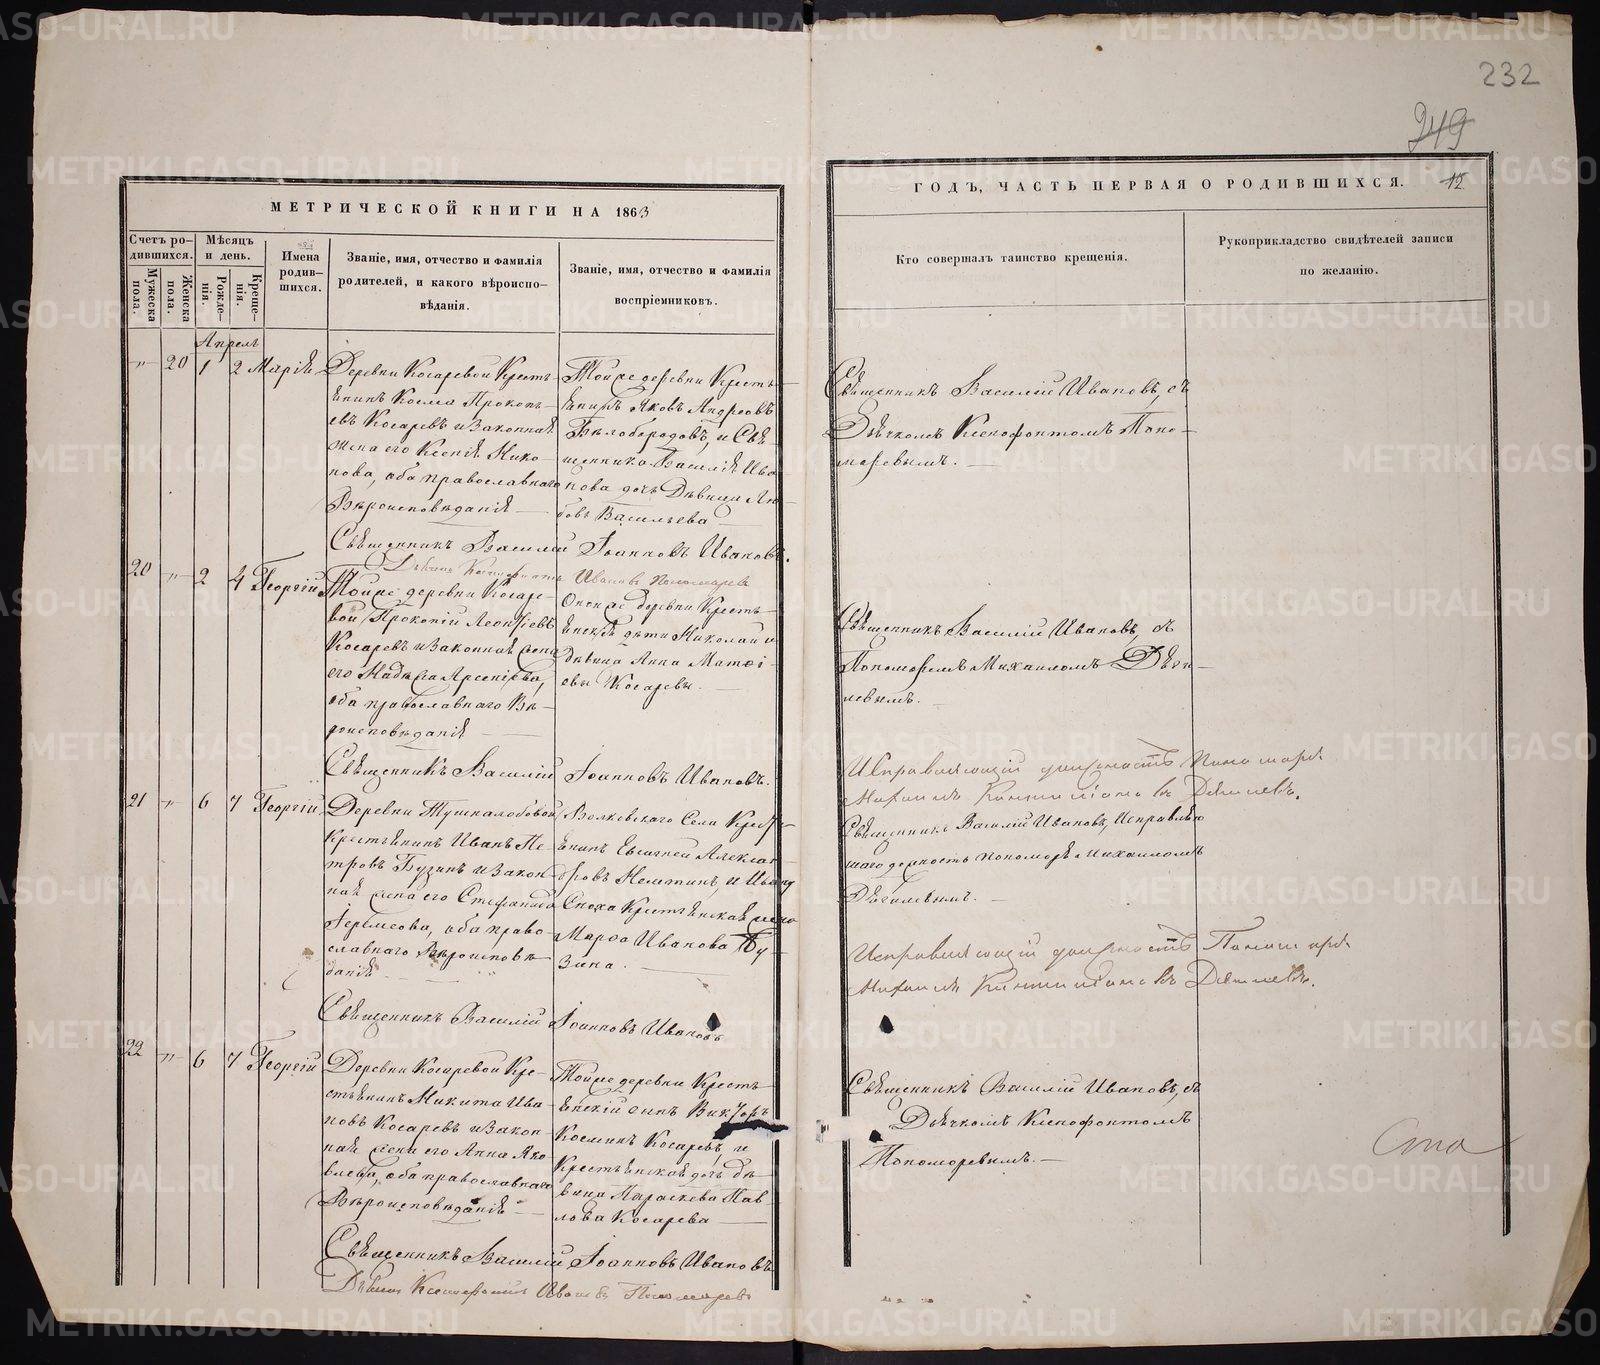 232
249
МЕТРИЧЕСКОЙ КНИГИ НА 1863
ГОДЪ, ЧАСТЬ ПЕРВАЯ О РОДИВШИХСЯ.
12
Счетъ ро-
дившихся.
Мужеска
пола.
Женска
пола.
Мѣсяцъ
и день.
Рожде-
нія.
Креще-
нія.
Имена
родив-
шихся.
Званіе, имя, отчество и фамилія
родителей, и какого вѣроиспо-
вѣданія.
Званіе, имя, отчество и фамилія
воспріемниковъ.
Кто совершалъ таинство крещенія.
Рукоприкладство свидѣтелей записи
по желанію.
Апрель
" 20 1 2 Марія
Деревни Косаревой Кресть-
янинъ Косма Прокопь-
евъ Косаревъ и Законная
жена его Ксенія Нико-
нова, оба православнаго
Вѣроисповѣданія
Тойже деревни Кресть-
янинъ Яковъ Андреевъ
Бѣлобородовъ, и Свя-
щенника Василія Ива-
нова дочь Дѣвица Лю-
бовь Васильева
Священникъ Василій Ивановъ, съ
Дьячкомъ Ксенофонтомъ Поно-
маревымъ.
Священникъ Василій Іоанновъ Ивановъ.
Дьячекъ Ксенофонтъ Ивановъ Пономаревъ
20 " 2 4 Георгій
Тойже деревни Косаре-
вой Прокопій Леонтіевъ
Косаревъ и Законная жена
его Надежда Арсеніева,
оба православнаго Вѣ-
роисповѣданія
Онойже деревни Кресть-
янскія дѣти Николай и
дѣвица Анна Матөі-
евы Косаревы.
Священникъ Василій Ивановъ, съ
Пономаремъ Михаиломъ Дяги-
левымъ.
Священникъ Василій Іоанновъ Ивановъ.
Исправляющій должность Пономаря
21 " 6 7 Георгій
Деревни Тушналобовой
Крестьянинъ Иванъ Пе-
тровъ Бузинъ и Закон-
ная жена его Стефанида
Іермеова, оба право-
славнаго Вѣроисповѣ-
данія
Волковскаго Села Кресть-
янинъ Евгеній Алексан-
дровъ Нелюбинъ, и Ивана
Крестьянская жена
Марөа Иванова Бу-
зина.
Священникъ Василій Ивановъ, Исправляю-
щаго должность пономаря Михаиломъ
Дягилевымъ.
Священникъ Василій Іоанновъ Ивановъ
Исправляющій должность Пономаря
22 " 6 7 Георгій
Деревни Косаревой Кре-
стьянинъ Никита Ива-
новъ Косаревъ и Закон-
ная жена его Анна Яко-
влева, оба православнаго
Вѣроисповѣданія
Тойже деревни Кресть-
янскій сынъ Викторъ
Косминъ Косаревъ, и
Крестьянская дочь дѣ-
вица Параскева Пав-
лова Косарева
Священникъ Василій Ивановъ, съ
Дьячкомъ Ксенофонтомъ
Пономаревымъ.
Священникъ Василій Іоанновъ Ивановъ
Дьячекъ Ксенофонтъ Ивановъ Пономаревъ
METRIKI.GASO-URAL.RU